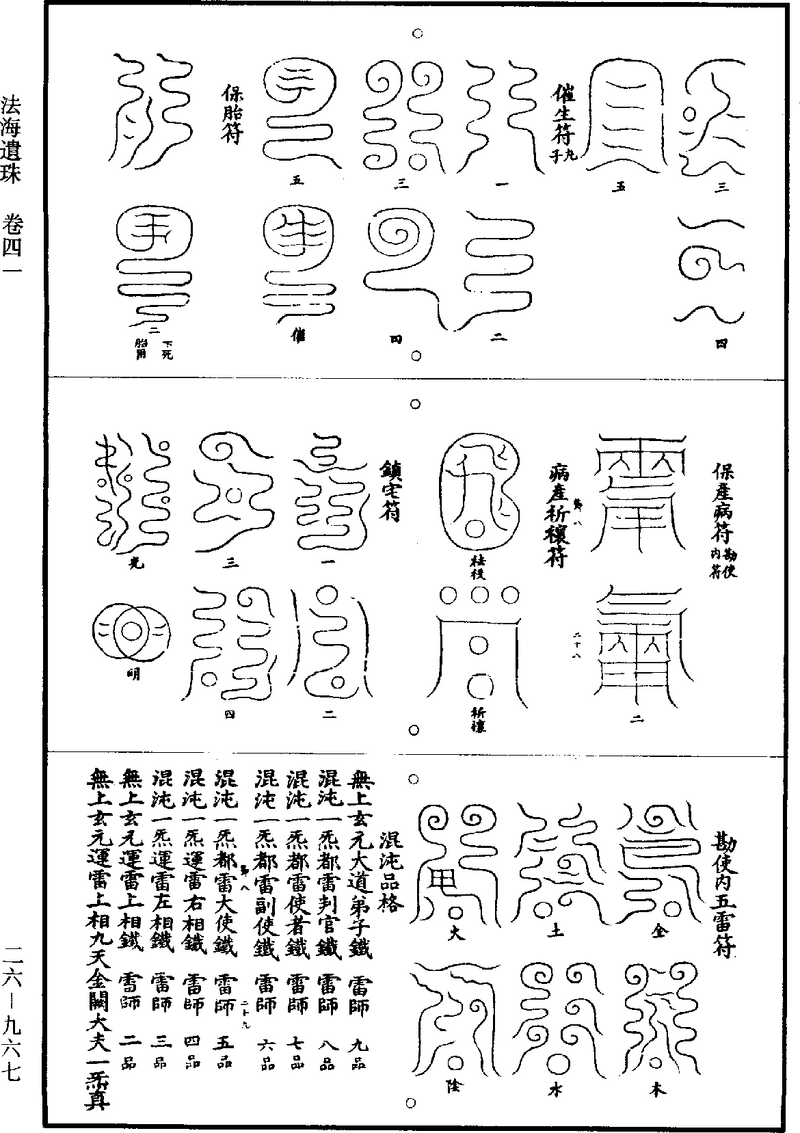 法海遺珠 卷四一
二六—九六七
三
四
五
催生符 九子
一
二
三
四
五
催
保胎符
二
下死胎用
保產病符 勘使內符
二
病產祈禳符
第八
二十八
祛後
祈禳
鎮宅符
一
二
三
四
光
明
勘使內五雷符
金
木
土
水
火
陰
混沌品格
無上玄元大道弟子鐵 雷師 九品
混沌一炁都雷判官鐵 雷師 八品
混沌一炁都雷使者鐵 雷師 七品
混沌一炁都雷副使鐵 雷師 六品
第八
二十九
混沌一炁都雷大使鐵 雷師 五品
混沌一炁運雷右相鐵 雷師 四品
混沌一炁運雷左相鐵 雷師 三品
無上玄元運雷上相鐵 雷師 二品
無上玄元運雷上相九天金闕大夫一炁真